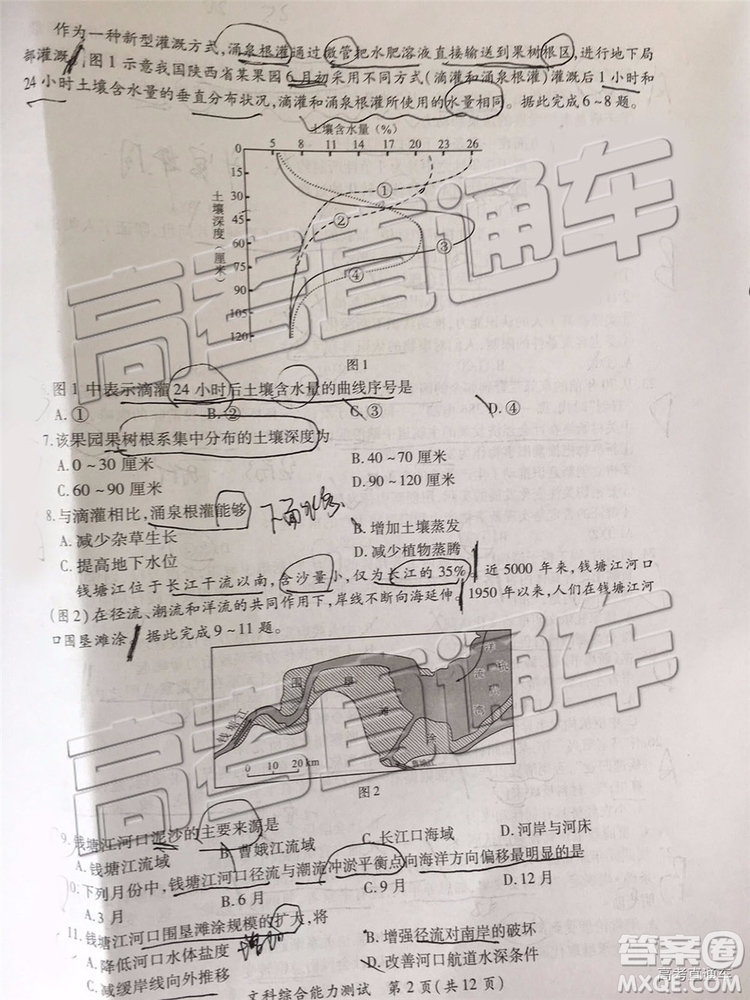 作为一种新型灌溉方式，涌泉根灌通过微管把水肥溶液直接输送到果树根区，进行地下局
部灌溉。图1示意我国陕西省某果园6月初采用不同方式(滴灌和涌泉根灌)灌溉后1小时和
24小时土壤含水量的垂直分布状况，滴灌和涌泉根灌所使用的水量相同。据此完成6~8题。
土壤含水量(%)
5 8 11 14 17 20 23 26
0
15
30
45
60
75
90
105
120
土壤深度(厘米)
①
②
③
④
图1
图1中表示滴灌24小时后土壤含水量的曲线序号是
A.① B.② C.③ D.④
7.该果园果树根系集中分布的土壤深度为
A.0~30厘米 B.40~70厘米
C.60~90厘米 D.90~120厘米
8.与滴灌相比，涌泉根灌能够
下面水多
A.减少杂草生长 B.增加土壤蒸发
C.提高地下水位 D.减少植物蒸腾
钱塘江位于长江干流以南，含沙量小，仅为长江的35%。近5000年来，钱塘江河口
(图2)在径流、潮流和洋流的共同作用下，岸线不断向海延伸。1950年以来，人们在钱塘江河
口围垦滩涂。据此完成9~11题。
钱塘江
围垦滩涂
杭州湾
曹娥江
0 10 20km
图2
9.钱塘江河口泥沙的主要来源是
A.钱塘江流域 B.曹娥江流域 C.长江口海域 D.河岸与河床
10.下列月份中，钱塘江河口径流与潮流冲淤平衡点向海洋方向偏移最明显的是
A.3月 B.6月 C.9月 D.12月
11.钱塘江河口围垦滩涂规模的扩大，将
A.降低河口水体盐度 B.增强径流对南岸的破坏
C.减缓岸线向外推移 D.改善河口航道水深条件
文科综合能力测试 第2页(共12页)
高考直通车
高考直通车
答案圈
MXQE.COM
高考直通车